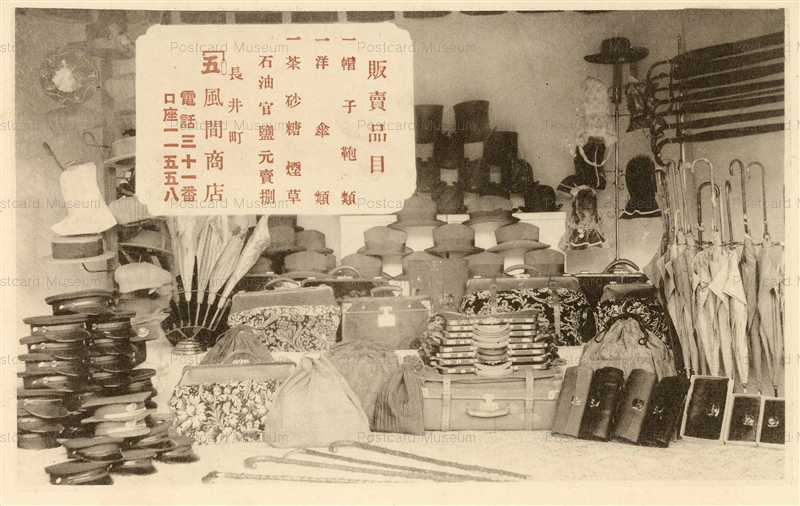 販賣品目
一帽子鞄類
一洋傘類
一茶砂糖煙草
石油官鹽元賣捌
長井町
五 風間商店
電話三十一番
口座一一五五八
Postcard Museum